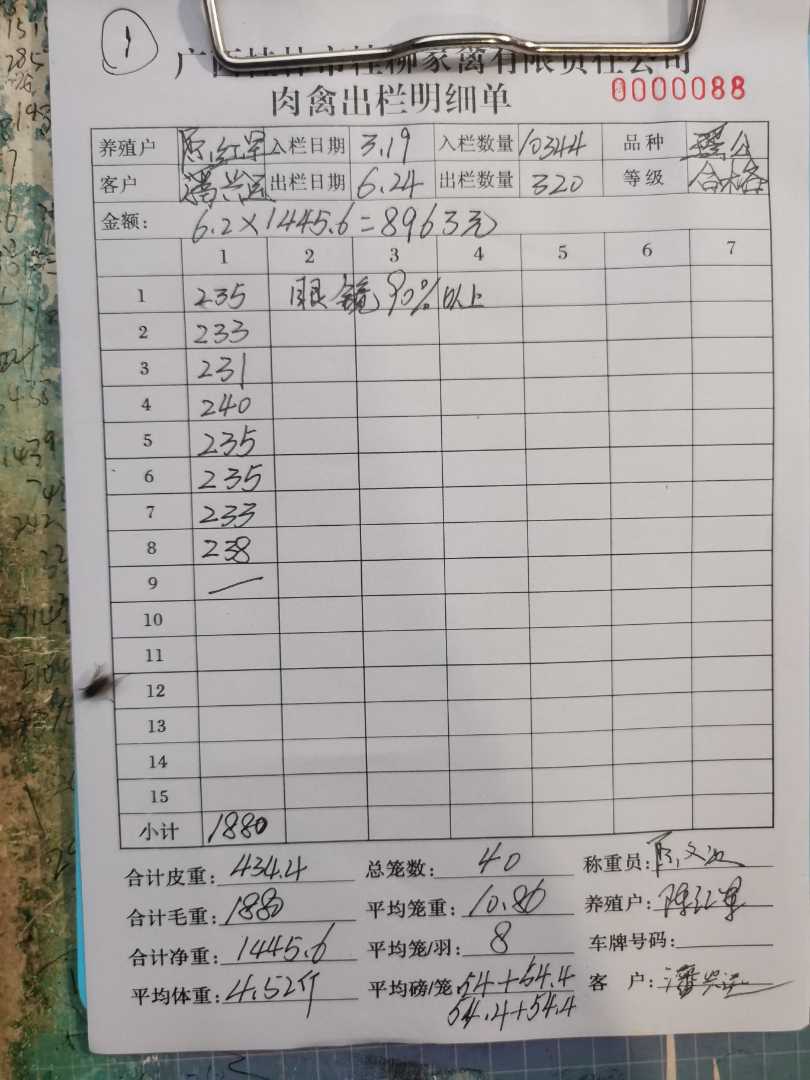 1
广西桂林市桂柳家禽有限责任公司
肉禽出栏明细单 0000088
养殖户 陈红军 入栏日期 3.19 入栏数量 10344 品种 瑶公
客户 潘兴远 出栏日期 6.24 出栏数量 320 等级 合格
金额: 6.2×1445.6=8963元
1 2 3 4 5 6 7
1 235 眼镜90%以上
2 233
3 231
4 240
5 235
6 235
7 233
8 238
9 —
10
11
12
13
14
15
小计 1880
合计皮重: 434.4 总笼数: 40 称重员:
合计毛重: 1880 平均笼重: 10.86 养殖户: 陈红军
合计净重: 1445.6 平均笼/羽: 8 车牌号码:
平均体重: 4.52斤 平均磅/笼: 54+54.4 客 户: 潘兴远
54.4+54.4